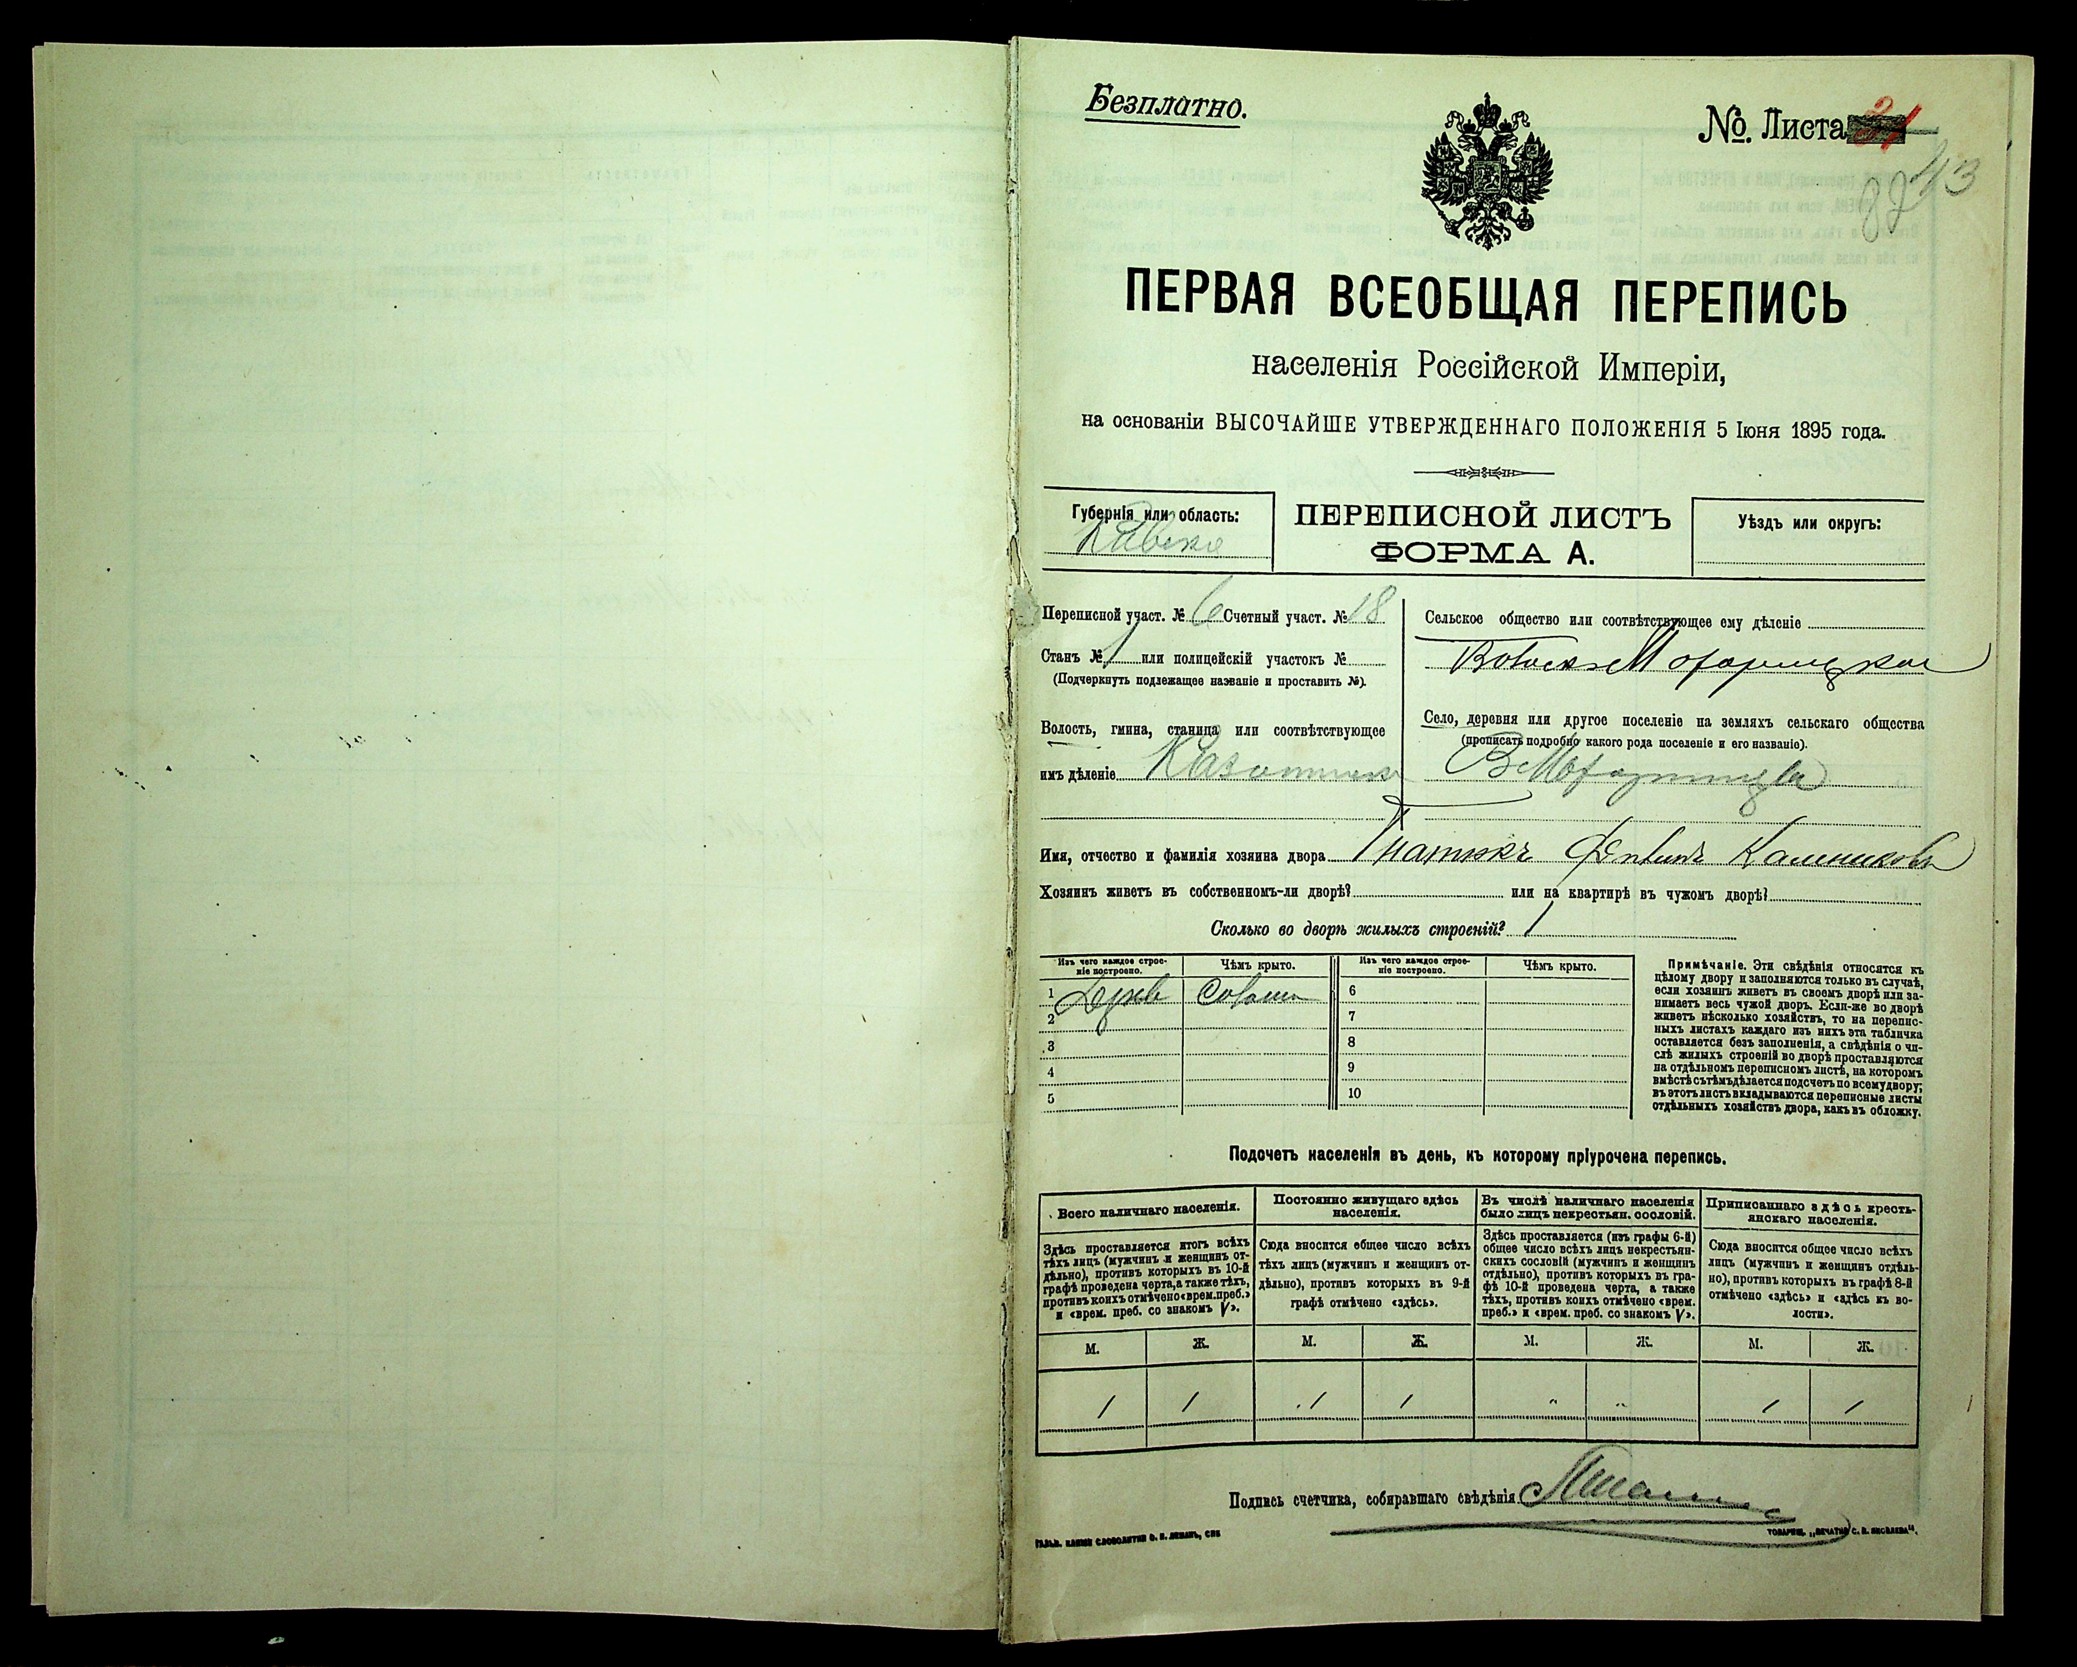 Безплатно.
№. Листа
43
ПЕРВАЯ ВСЕОБЩАЯ ПЕРЕПИСЬ
населенія Россійской Имперіи,
на основаніи ВЫСОЧАЙШЕ УТВЕРЖДЕННАГО ПОЛОЖЕНІЯ 5 Іюня 1895 года.
Губернія или область:
ПЕРЕПИСНОЙ ЛИСТЪ
ФОРМА А.
Уѣздъ или округъ:
Переписной участ. № 6 Счетный участ. № 18
Станъ № 1 или полицейскій участокъ №
(Подчеркнуть подлежащее названіе и проставить №).
Волость, гмина, станица или соотвѣтствующее
имъ дѣленіе
Сельское общество или соотвѣтствующее ему дѣленіе
Село, деревня или другое поселеніе на земляхъ сельскаго общества
(прописать подробно какого рода поселеніе и его названіе).
Имя, отчество и фамилія хозяина двора
Хозяинъ живетъ въ собственномъ-ли дворѣ? или на квартирѣ въ чужомъ дворѣ?
Сколько во дворѣ жилыхъ строеній? 1
Изъ чего каждое строе-
ніе построено.
Чѣмъ крыто.
Изъ чего каждое строе-
ніе построено.
Чѣмъ крыто.
1 6
2 7
3 8
4 9
5 10
Примѣчаніе. Эти свѣдѣнія относятся къ
цѣлому двору и заполняются только въ случаѣ,
если хозяинъ живетъ въ своемъ дворѣ или за-
нимаетъ весь чужой дворъ. Если-же во дворѣ
живетъ нѣсколько хозяйствъ, то на перепис-
ныхъ листахъ каждаго изъ нихъ эта табличка
оставляется безъ заполненія, а свѣдѣнія о чи-
слѣ жилыхъ строеній во дворѣ проставляются
на отдѣльномъ переписномъ листѣ, на которомъ
вмѣстѣ съ тѣмъ дѣлается подсчетъ по всему двору;
въ этотъ листъ вкладываются переписные листы
отдѣльныхъ хозяйствъ двора, какъ въ обложку.
Подсчетъ населенія въ день, къ которому пріурочена перепись.
Всего наличнаго населенія.
Здѣсь проставляется итогъ всѣхъ
тѣхъ лицъ (мужчинъ и женщинъ от-
дѣльно), противъ которыхъ въ 10-й
графѣ проведена черта, а также тѣхъ,
противъ коихъ отмѣчено «врем. преб.»
и «врем. преб. со знакомъ V».
Постоянно живущаго здѣсь
населенія.
Сюда вносится общее число всѣхъ
тѣхъ лицъ (мужчинъ и женщинъ от-
дѣльно), противъ которыхъ въ 9-й
графѣ отмѣчено «здѣсь».
Въ числѣ наличнаго населенія
было лицъ некрестьян. сословій.
Здѣсь проставляется (изъ графы 6-й)
общее число всѣхъ лицъ некрестьян-
скихъ сословій (мужчинъ и женщинъ
отдѣльно), противъ которыхъ въ гра-
фѣ 10-й проведена черта, а также
тѣхъ, противъ коихъ отмѣчено «врем.
преб.» и «врем. преб. со знакомъ V».
Приписаннаго здѣсь кресть-
янскаго населенія.
Сюда вносится общее число всѣхъ
лицъ (мужчинъ и женщинъ отдѣль-
но), противъ которыхъ въ графѣ 8-й
отмѣчено «здѣсь» и «здѣсь къ во-
лости».
М. Ж. М. Ж. М. Ж. М. Ж.
1 1 1 1 " " 1 1
Подпись счетчика, собиравшаго свѣдѣнія